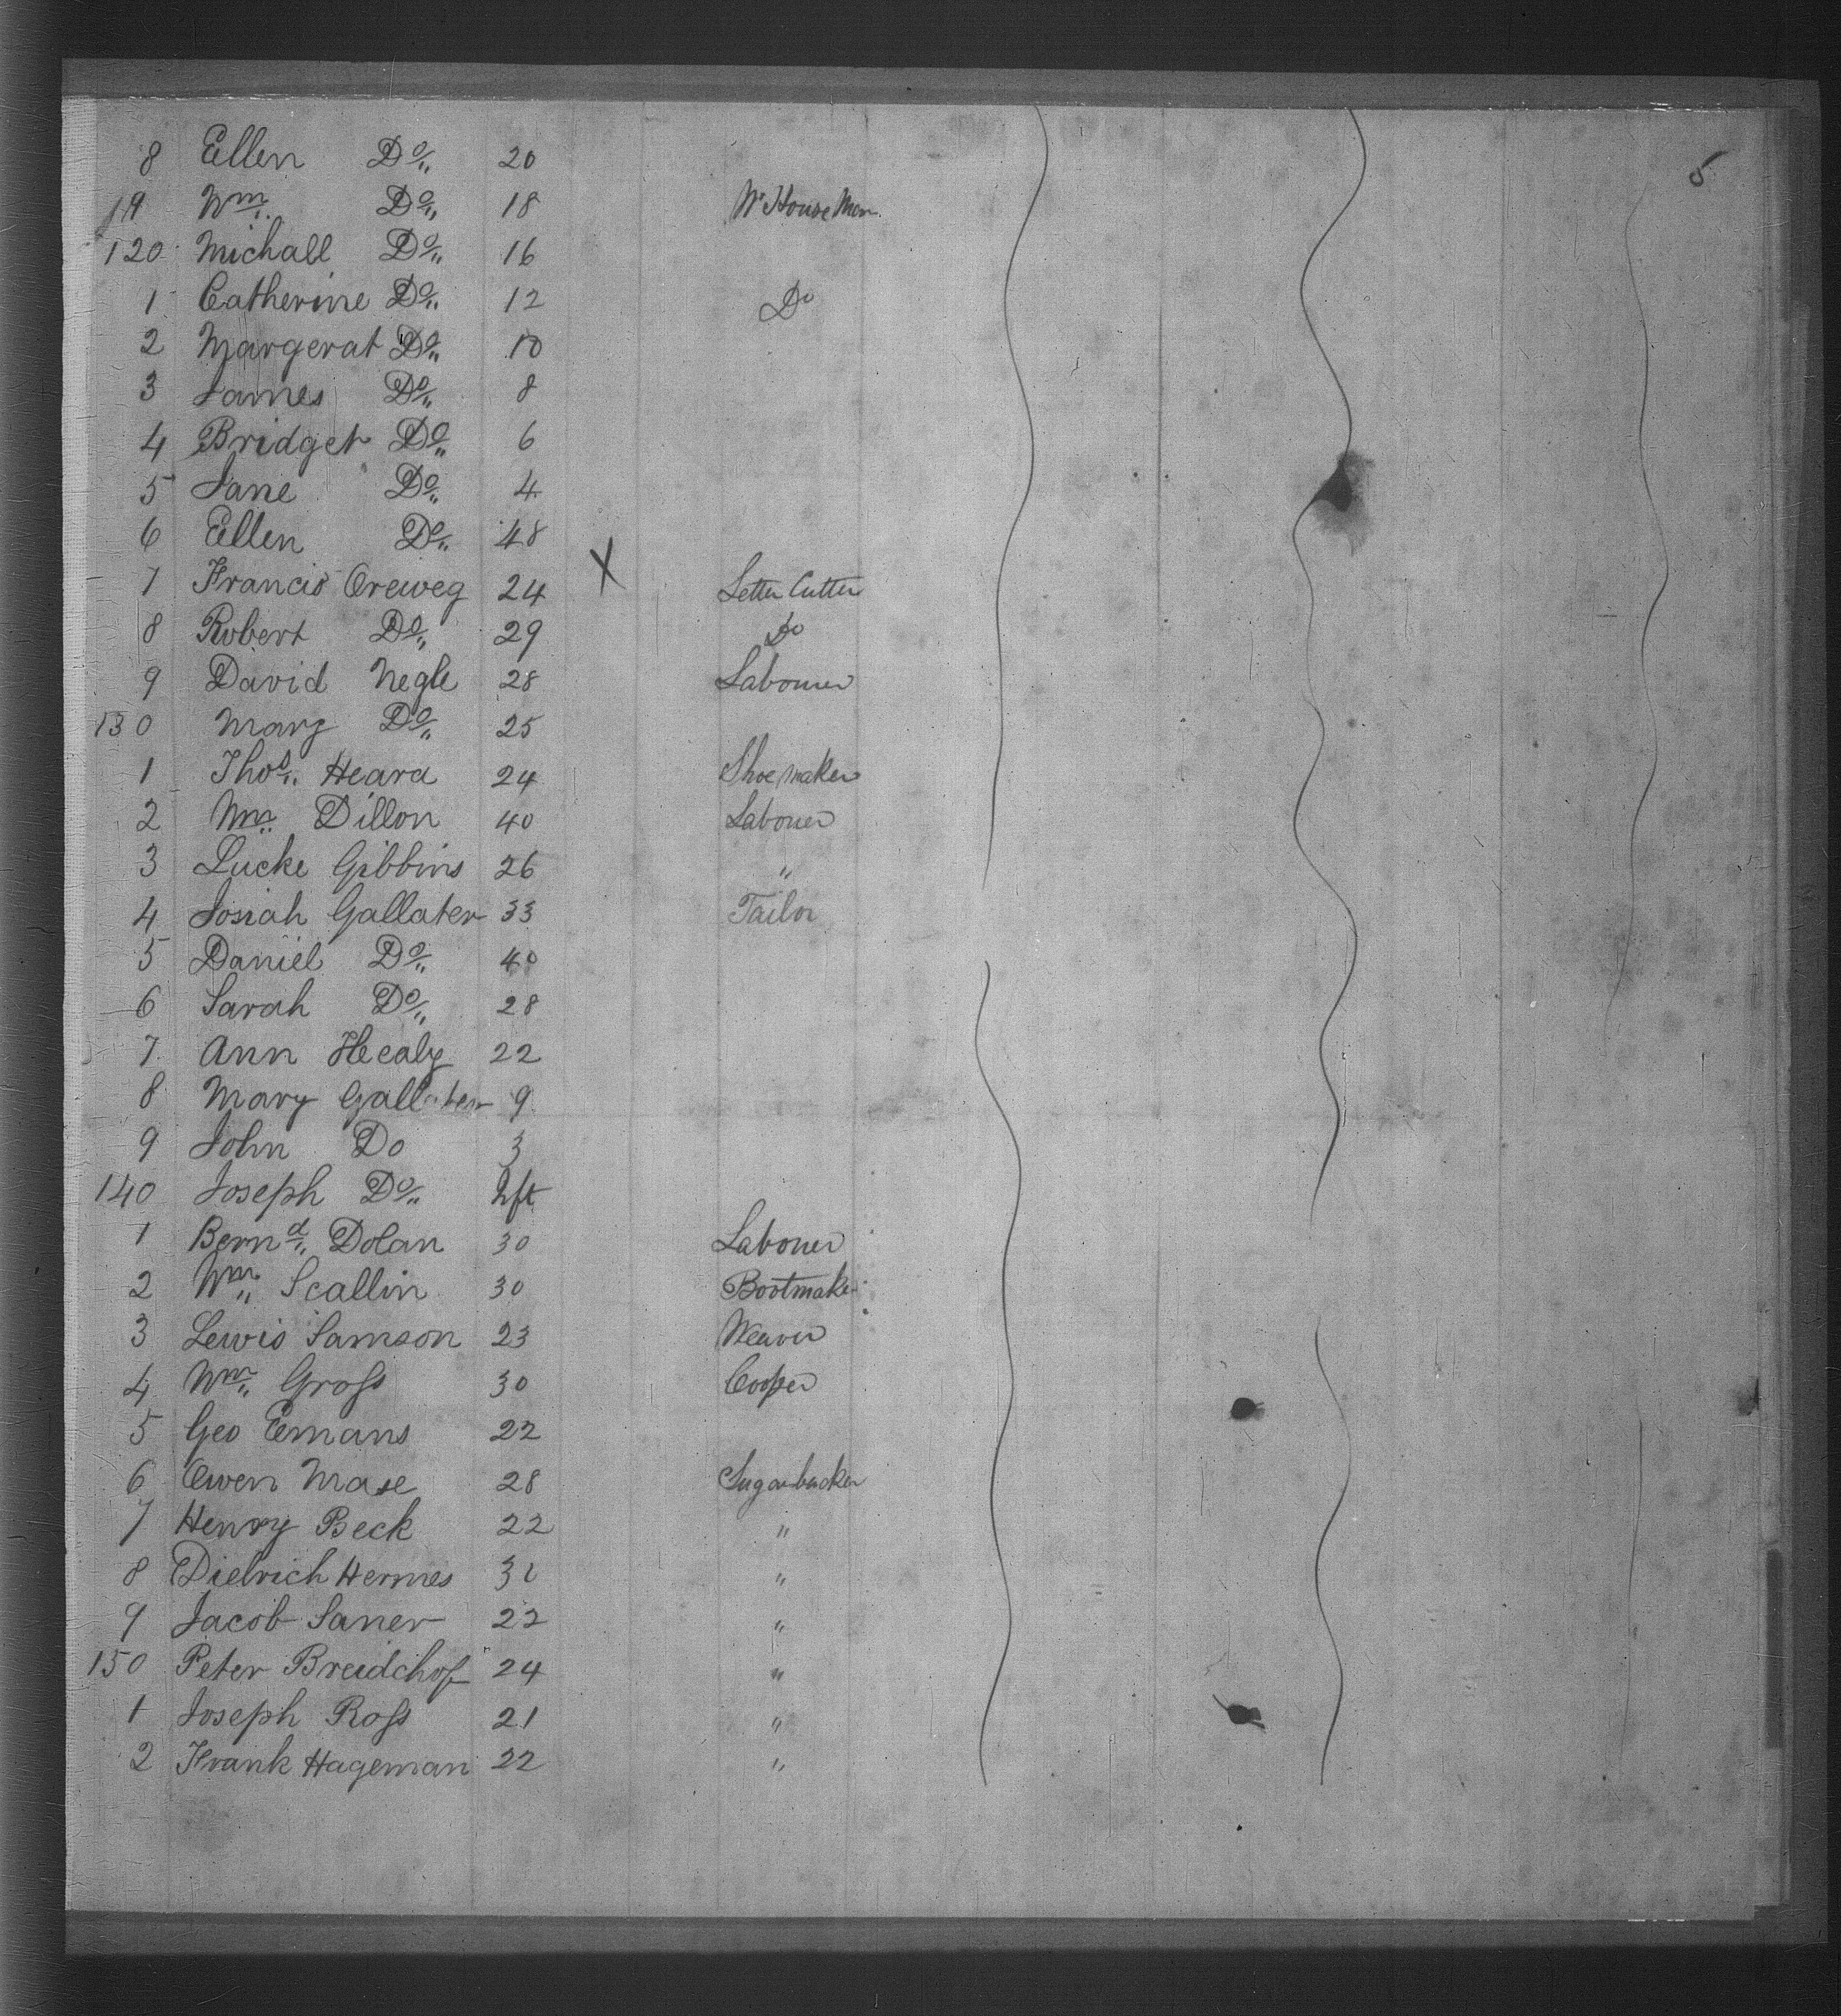 5
8 Ellen Do 20
119 Wm Do 18 W House Man
120 Michall Do 16
1 Catherine Do 12 Do
2 Margerat Do 10
3 James Do 8
4 Bridget Do 6
5 Jane Do 4
6 Ellen Do 48
7 Francis Oreweg 24 X Letter Cutter
8 Robert Do 29 Do
9 David Negle 28 Labourer
130 Mary Do 25
1 Thos Heara 24 Shoemaker
2 Wm Dillon 40 Labourer
3 Lucke Gibbins 26 "
4 Josiah Gallater 33 Tailor
5 Daniel Do 40
6 Sarah Do 28
7 Ann Healy 22
8 Mary Gallater 9
9 John Do 3
140 Joseph Do Inft
1 Bernd Dolan 30 Labourer
2 Wm Scallin 30 Bootmaker
3 Lewis Samson 23 Weaver
4 Wm Gross 30 Cooper
5 Geo Eemans 22
6 Owen Mase 28 Sugarbacker
7 Henry Beck 22 "
8 Dielrich Hermes 31 "
9 Jacob Saner 22 "
150 Peter Breidchof 24 "
1 Joseph Ross 21 "
2 Frank Hageman 22 "